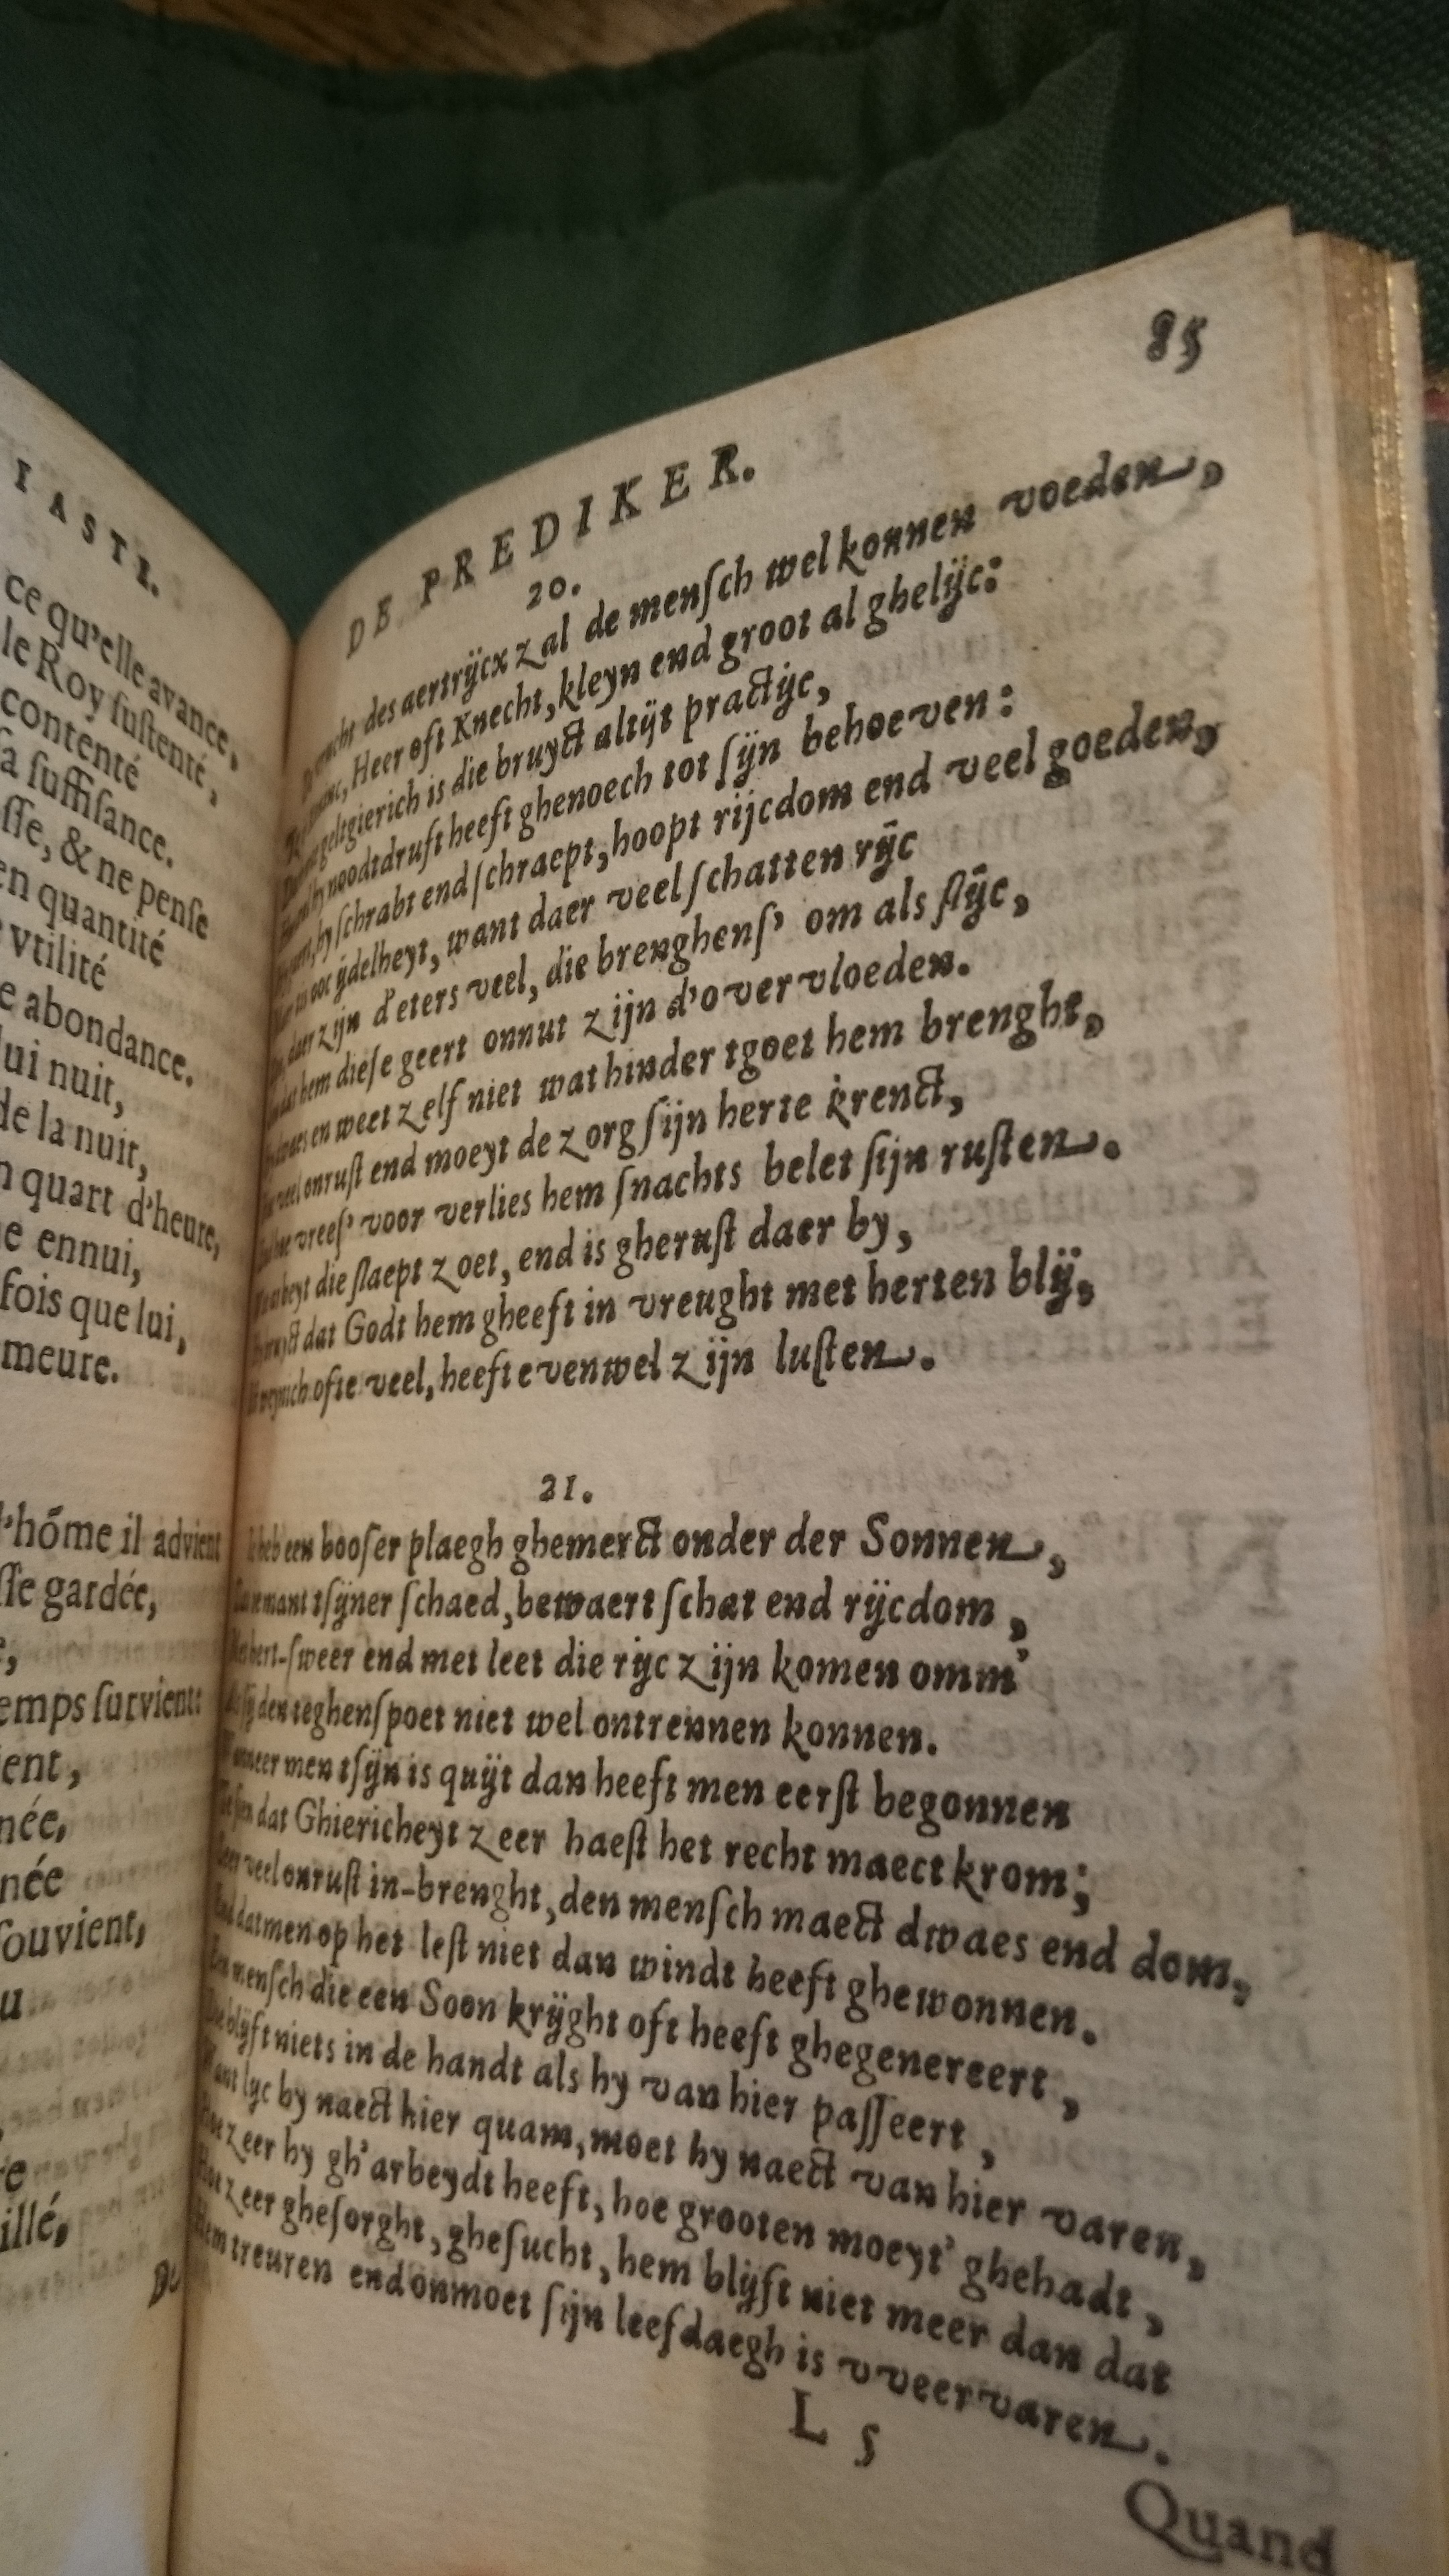 IASTE.
ce qu'elle avance,
le Roy ſuſtenté,
contenté
ſa ſuffiſance.
ſſe, & ne penſe
en quantité
vtilité
e abondance.
lui nuit,
de la nuit,
n quart d'heure,
e ennui,
fois que lui,
meure.
l'hõme il advient
ſſe gardée,
emps ſurvient:
ent,
née,
née
ſouvient,
u
illé,
85
DE PREDIKER.
20.
des aertrijcx zal de menſch wel konnen voeden,
Heer oft Knecht, kleyn end groot al ghelijc:
geltgierich is die bruyct altijt practijc,
noodtdruft heeft ghenoech tot ſijn behoeven:
hy ſchrabt end ſchraept, hoopt rijcdom end veel goeden,
ooc ijdelheyt, want daer veel ſchatten rijc
daer zijn d'eters veel, die brenghenſ' om als ſlijc,
hem dieſe geert onnut zijn d'overvloeden.
en weet zelf niet wat hinder tgoet hem brenght,
veel onruſt end moeyt de zorg ſijn herte krenct,
vreeſ' voor verlies hem ſnachts belet ſijn ruſten.
die ſlaept zoet, end is gheruſt daer by,
dat Godt hem gheeft in vreught met herten blij,
ofte veel, heeft evenwel zijn luſten.
21.
heb een booſer plaegh ghemerct onder der Sonnen,
tſijner ſchaed, bewaert ſchat end rijcdom,
hert-ſweer end met leet die rijc zijn komen omm'
den teghenſpoet niet wel ontrennen konnen.
Wanneer men tſijn is quijt dan heeft men eerſt begonnen
dat Ghiericheyt zeer haeſt het recht maect krom;
veel onruſt in-brenght, den menſch maect dwaes end dom,
End datmen op het leſt niet dan windt heeft ghewonnen.
menſch die een Soon krijght oft heeft ghegenereert,
blijft niets in de handt als hy van hier paſſeert,
Want lyc hy naect hier quam, moet hy naect van hier varen,
Hoe zeer hy gh'arbeydt heeft, hoe grooten moeyt' ghehadt,
Hoe zeer gheſorght, gheſucht, hem blijft niet meer dan dat
Hem treuren end onmoet ſijn leefdaegh is vveervaren.
L 5
Quand